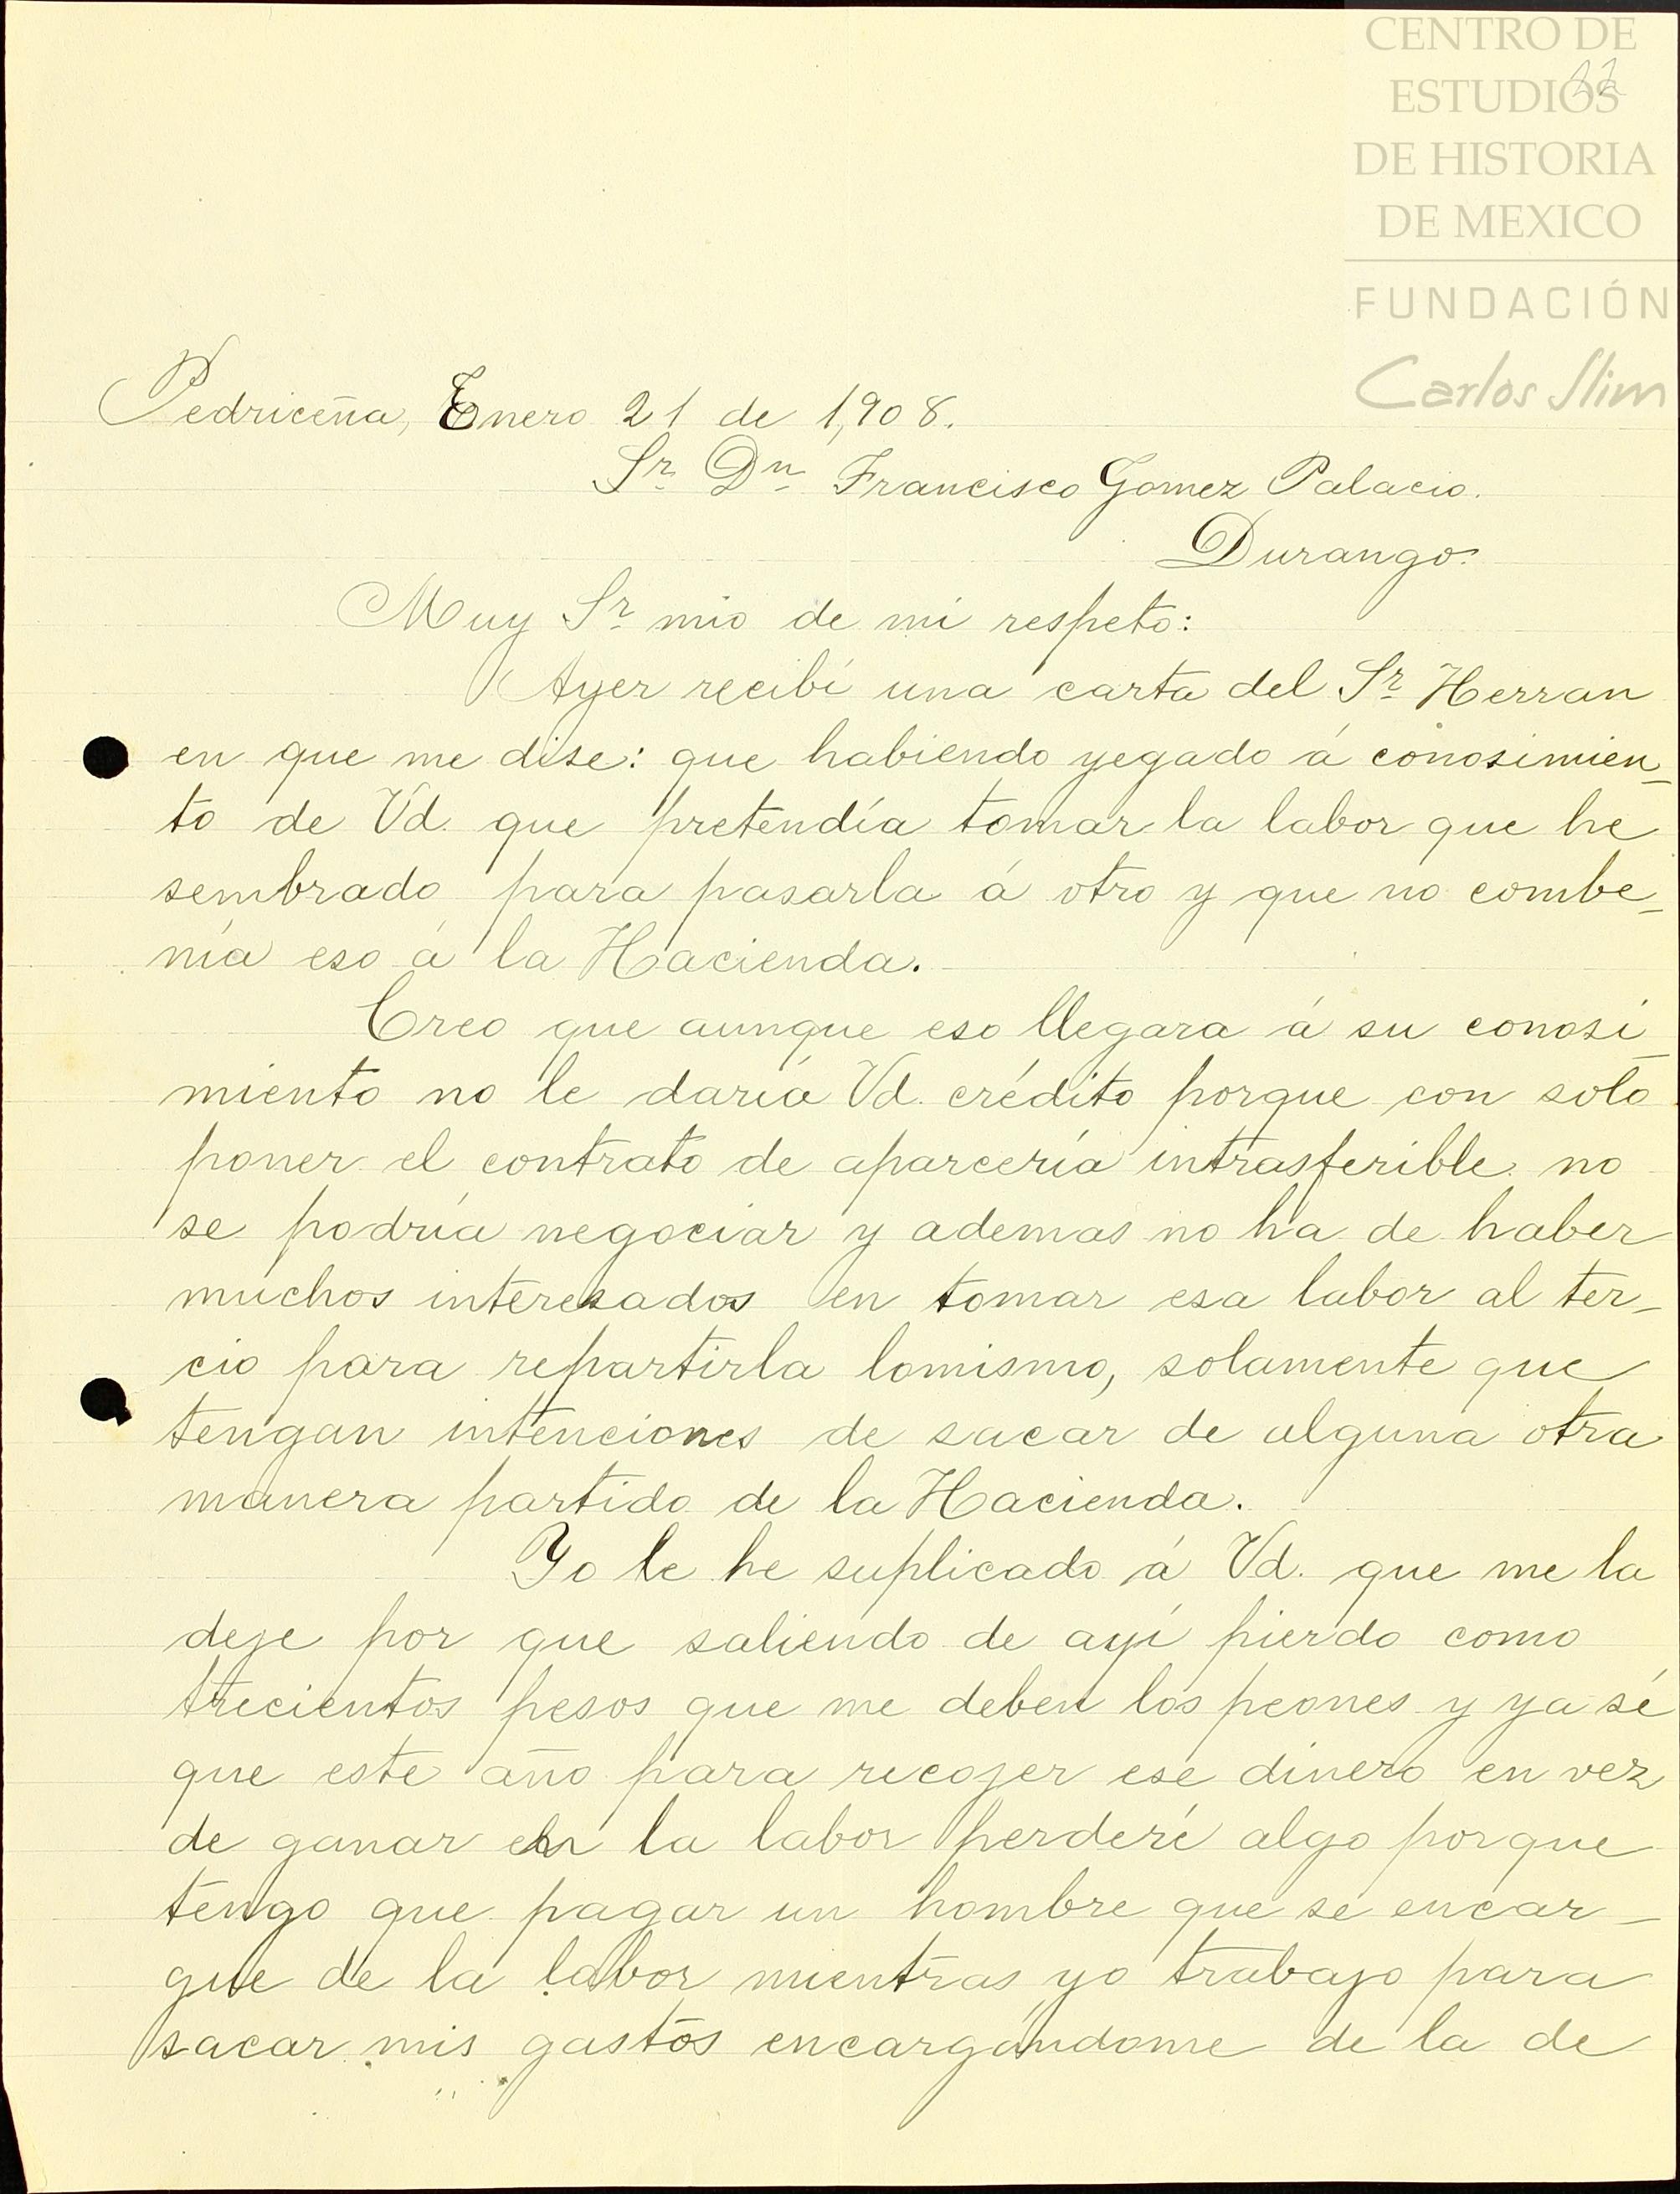 CENTRO DE
ESTUDIOS
DE HISTORIA
DE MEXICO
FUNDACIÓN
Carlos Slim
22
Pedriceña, Enero 21 de 1,908.
Sr. Dn. Francisco Gomez Palacio.
Durango.
Muy Sr. mio de mi respeto:
Ayer recibí una carta del Sr. Herran
en que me dise: que habiendo yegado á conosimien-
to de Vd. que pretendía tomar la labor que he
sembrado para pasarla á otro y que no combe-
nía eso á la Hacienda.
Creo que aunque eso llegara á su conosi
miento no le daría Vd. crédito porque con solo
poner el contrato de aparcería intrasferible no
se podría negociar y ademas no ha de haber
muchos interesados en tomar esa labor al ter-
cio para repartirla lomismo, solamente que
tengan intenciones de sacar de alguna otra
manera partido de la Hacienda.
Yo le he suplicado á Vd. que me la
deje por que saliendo de ayí pierdo como
trecientos pesos que me deben los peones y ya sé
que este año para recojer ese dinero en vez
de ganar en la labor perderé algo porque
tengo que pagar un hombre que se encar-
gue de la labor mientras yo trabajo para
sacar mis gastos encargándome de la de